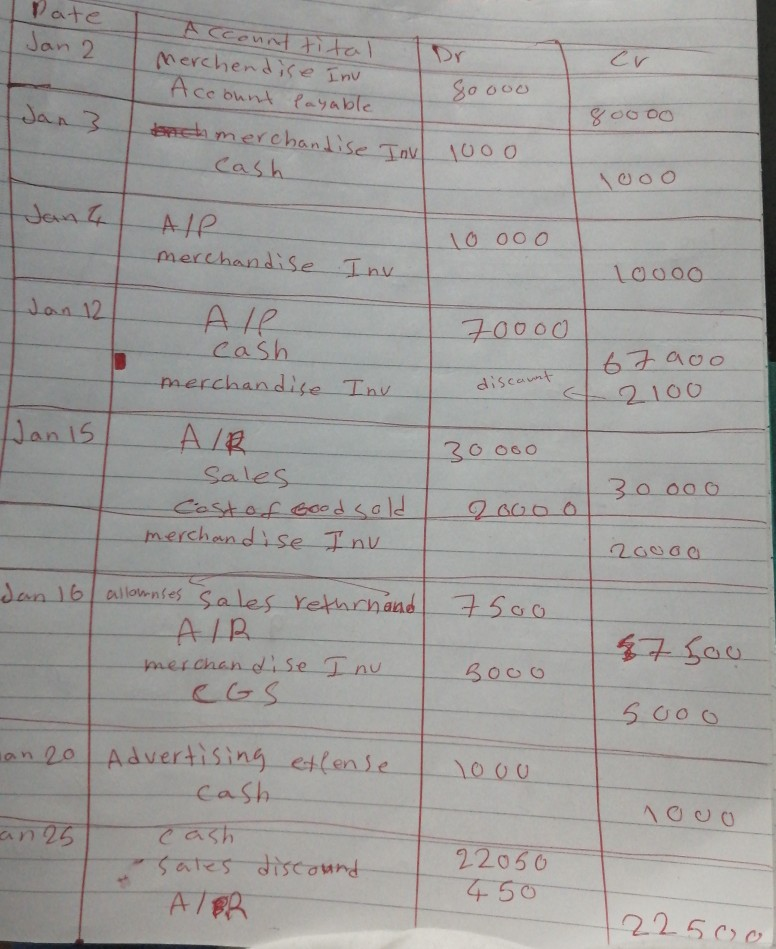 Date Account tital Dr Cr
Jan 2 Merchendise Inv 80000
Account Payable 80000
Jan 3 merchandise Inv 1000
Cash 1000
Jan 4 A/P 10 000
merchandise Inv 10000
Jan 12 A/P 70000
Cash 67900
merchandise Inv discount 2100
Jan 15 A/R 30000
Sales 30000
Cost of Good sold 20000
merchandise Inv 20000
Jan 16 allownses Sales returnand 7500
A/R 7500
merchandise Inv 5000
CGS 5000
an 20 Advertising effense 1000
Cash 1000
an 25 cash 22050
Sales discound 450
A/R 22500